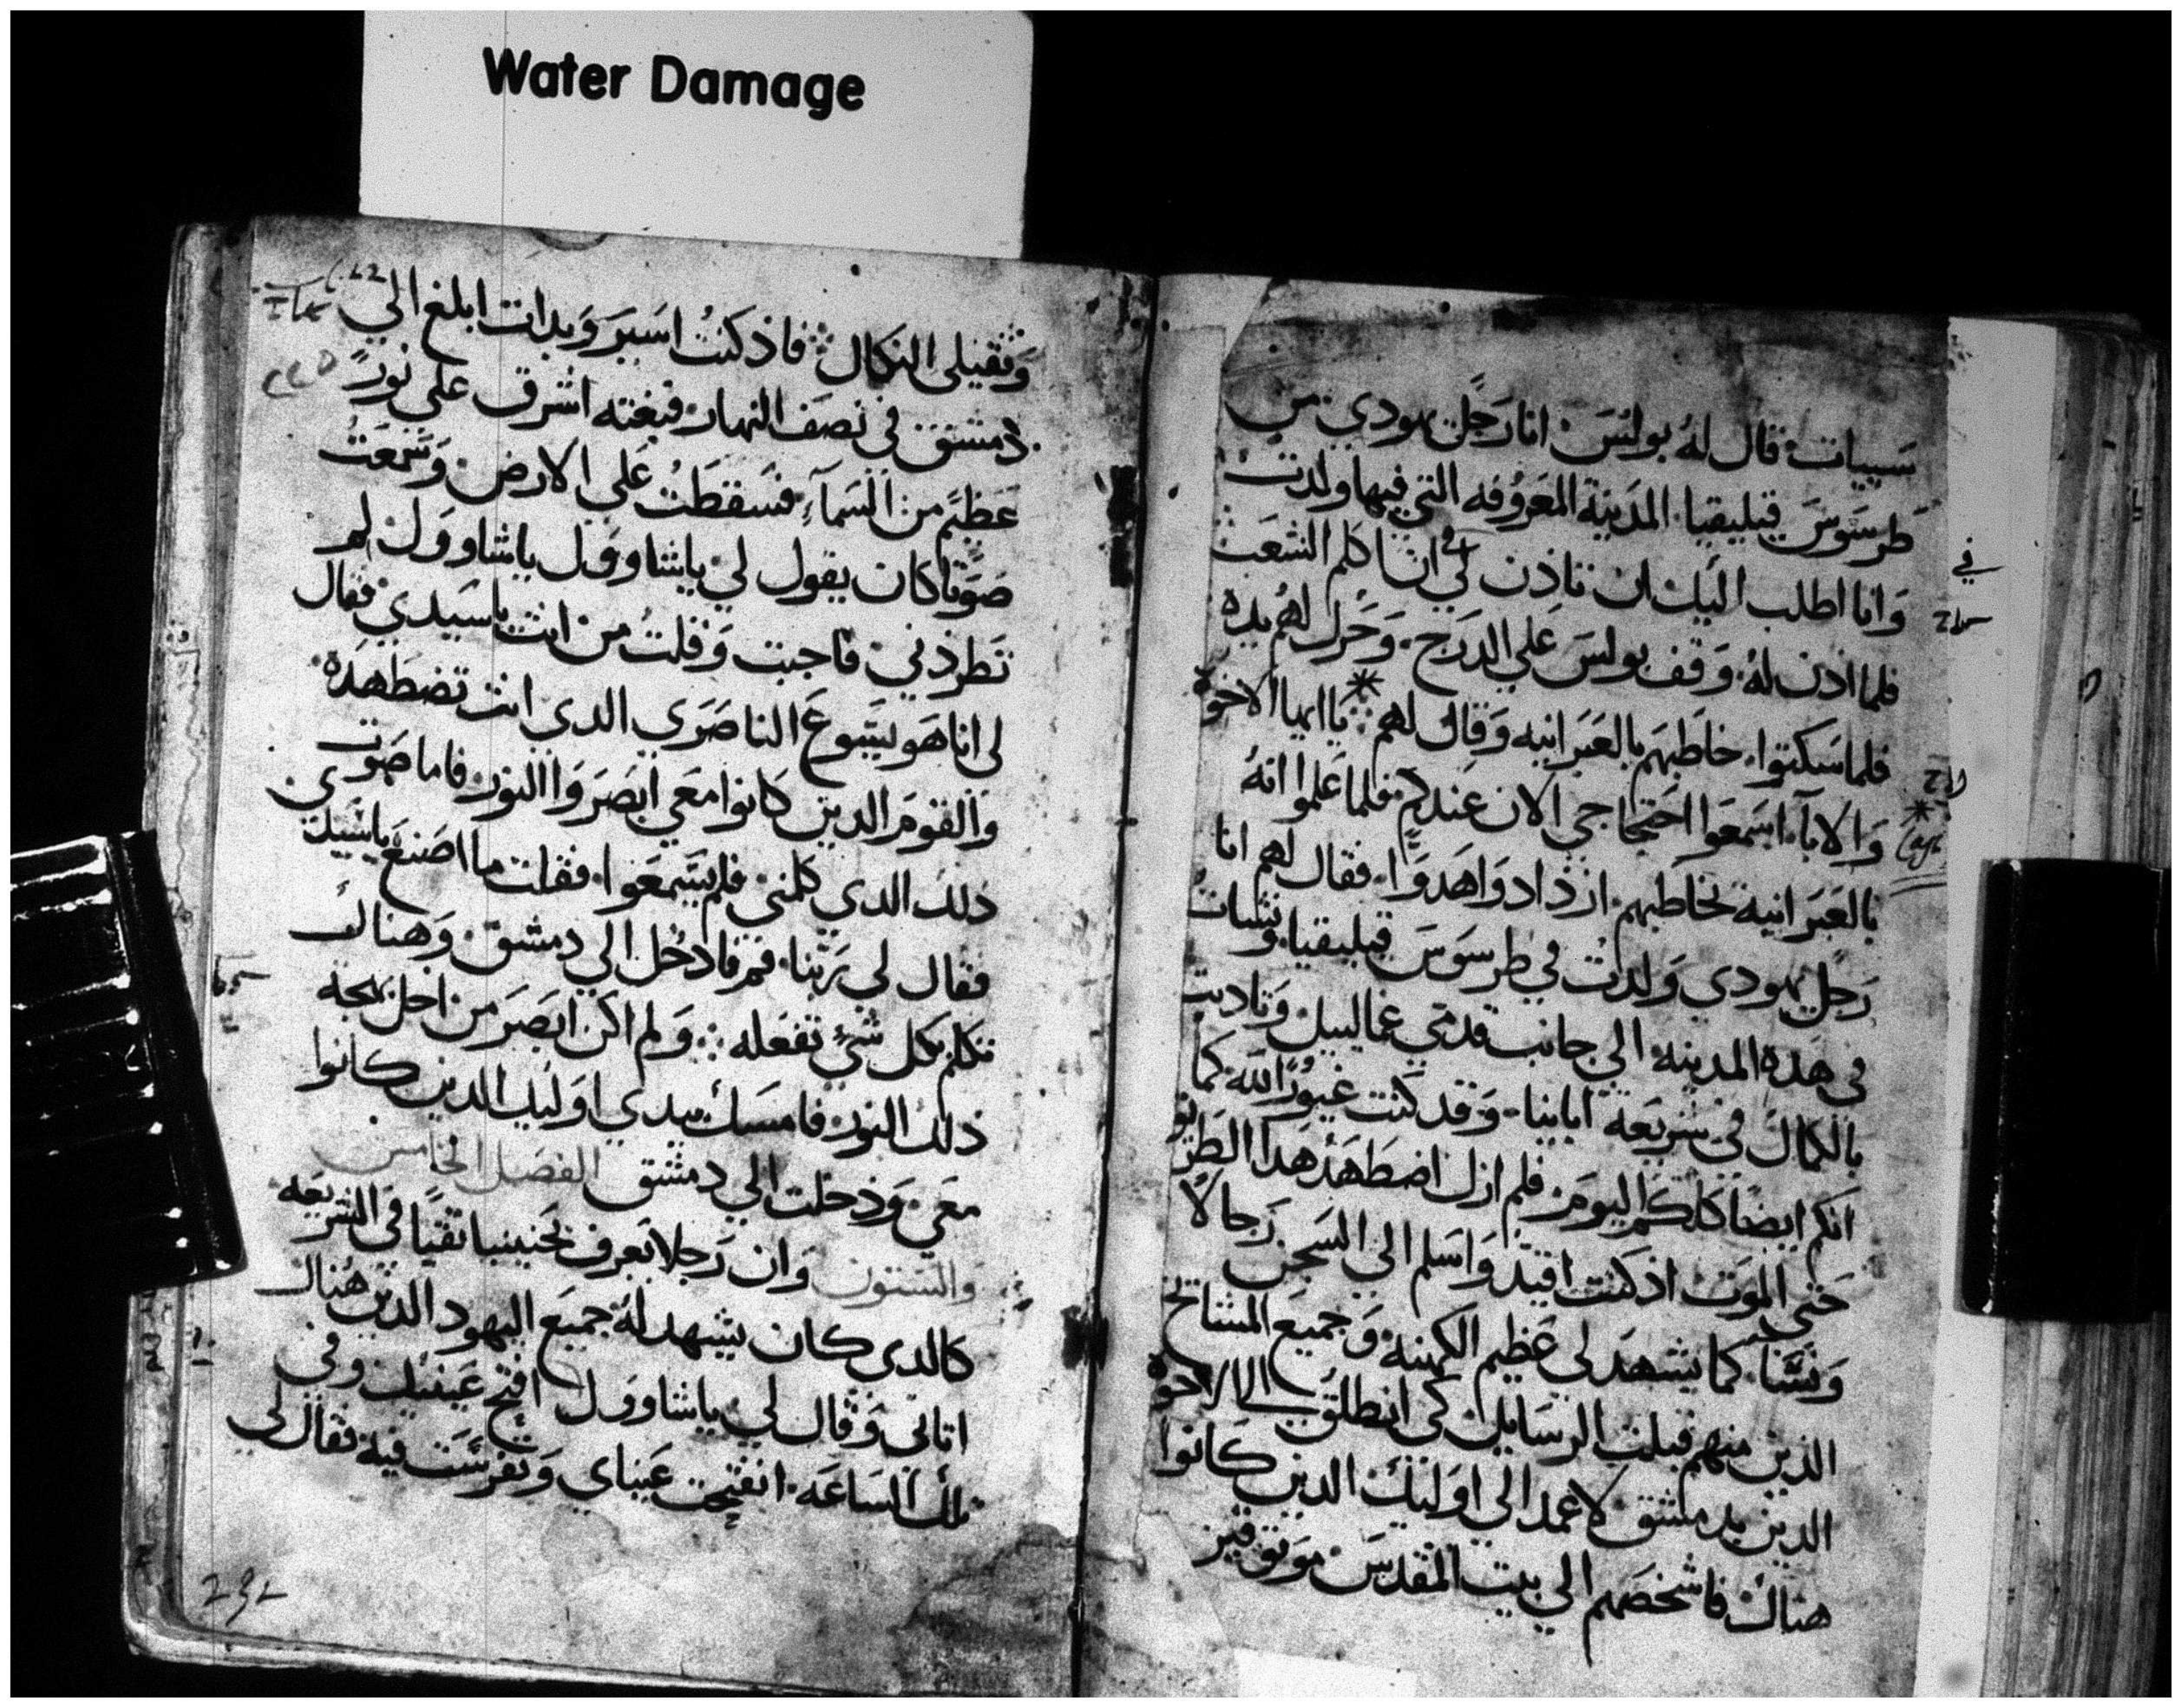 Water Damage
سيبيات قال له بولس انا رجل يهودي من
طرسوس قيليقيا المدينة المعروفه التي فيها ولدت
وانا اطلب اليك ان تاذن لي ان اكلم الشعب
فلما اذن له وقف بولس علي الدرج وحرك لهم يده
فلما سكتوا خاطبهم بالعبرانيه وقال لهم يا ايها الاخوة
والابآ اسمعوا احتجاجي الان عندكم فلما علموا انه
بالعبرانية يخاطبهم ازدادوا هدوا فقال لهم انا
رجل يهودي ولدت في طرسوس قيليقيا ونشات
في هذه المدينه الي جانب قدمي غماليل وتادبت
بالكمال في شريعة ابائنا وقد كنت غيورا لله كما
انكم ايضا كلكم اليوم فلم ازل اضطهد هدا الطريق
حتي الموت اذ كنت اقيد واسلم الي السجن رجالا
ونسا كما يشهد لي عظيم الكهنه وجميع المشائخ
الذين منهم قبلت الرسايل كي انطلق الي الاخوة
الدين بدمشق لاعمد الي اوليك الدين كانوا
هناك فاشخصهم الي بيت المقدس موثوقين
وتقبلي النكال فاذ كنت اسير وبدات ابلغ الي
دمشق في نصف النهار فبغته اشرق علي نور
عظيم من السمآء فسقطت علي الارض وسمعت
صوتا كان يقول لي ياشاوول ياشاوول لم
تطردني فاجبت وقلت من انت ياسيدي فقال
لي انا هو يسوع الناصري الدي انت تضطهده
والقوم الدين كانوا معي ابصروا النور فاما صوت
ذلك الدي كلمني فلم يسمعوا فقلت ما اصنع ياسيدي
فقال لي ربنا قم فادخل الي دمشق وهناك
تكلم بكل شي تفعله ولم اكن ابصر من اجل بهجة
ذلك النور فامسك بيدي اوليك الدين كانوا
معي ودخلت الي دمشق الفصل الخامس
والستون وان رجلا يعرف بحنينيا تقيا في الشريعه
كالدي كان يشهد له جميع اليهود الدين هناك
اتاني وقال لي ياشاوول افتح عينيك وفي
تلك الساعه انفتحت عيناي وتفرست فيه فقال لي